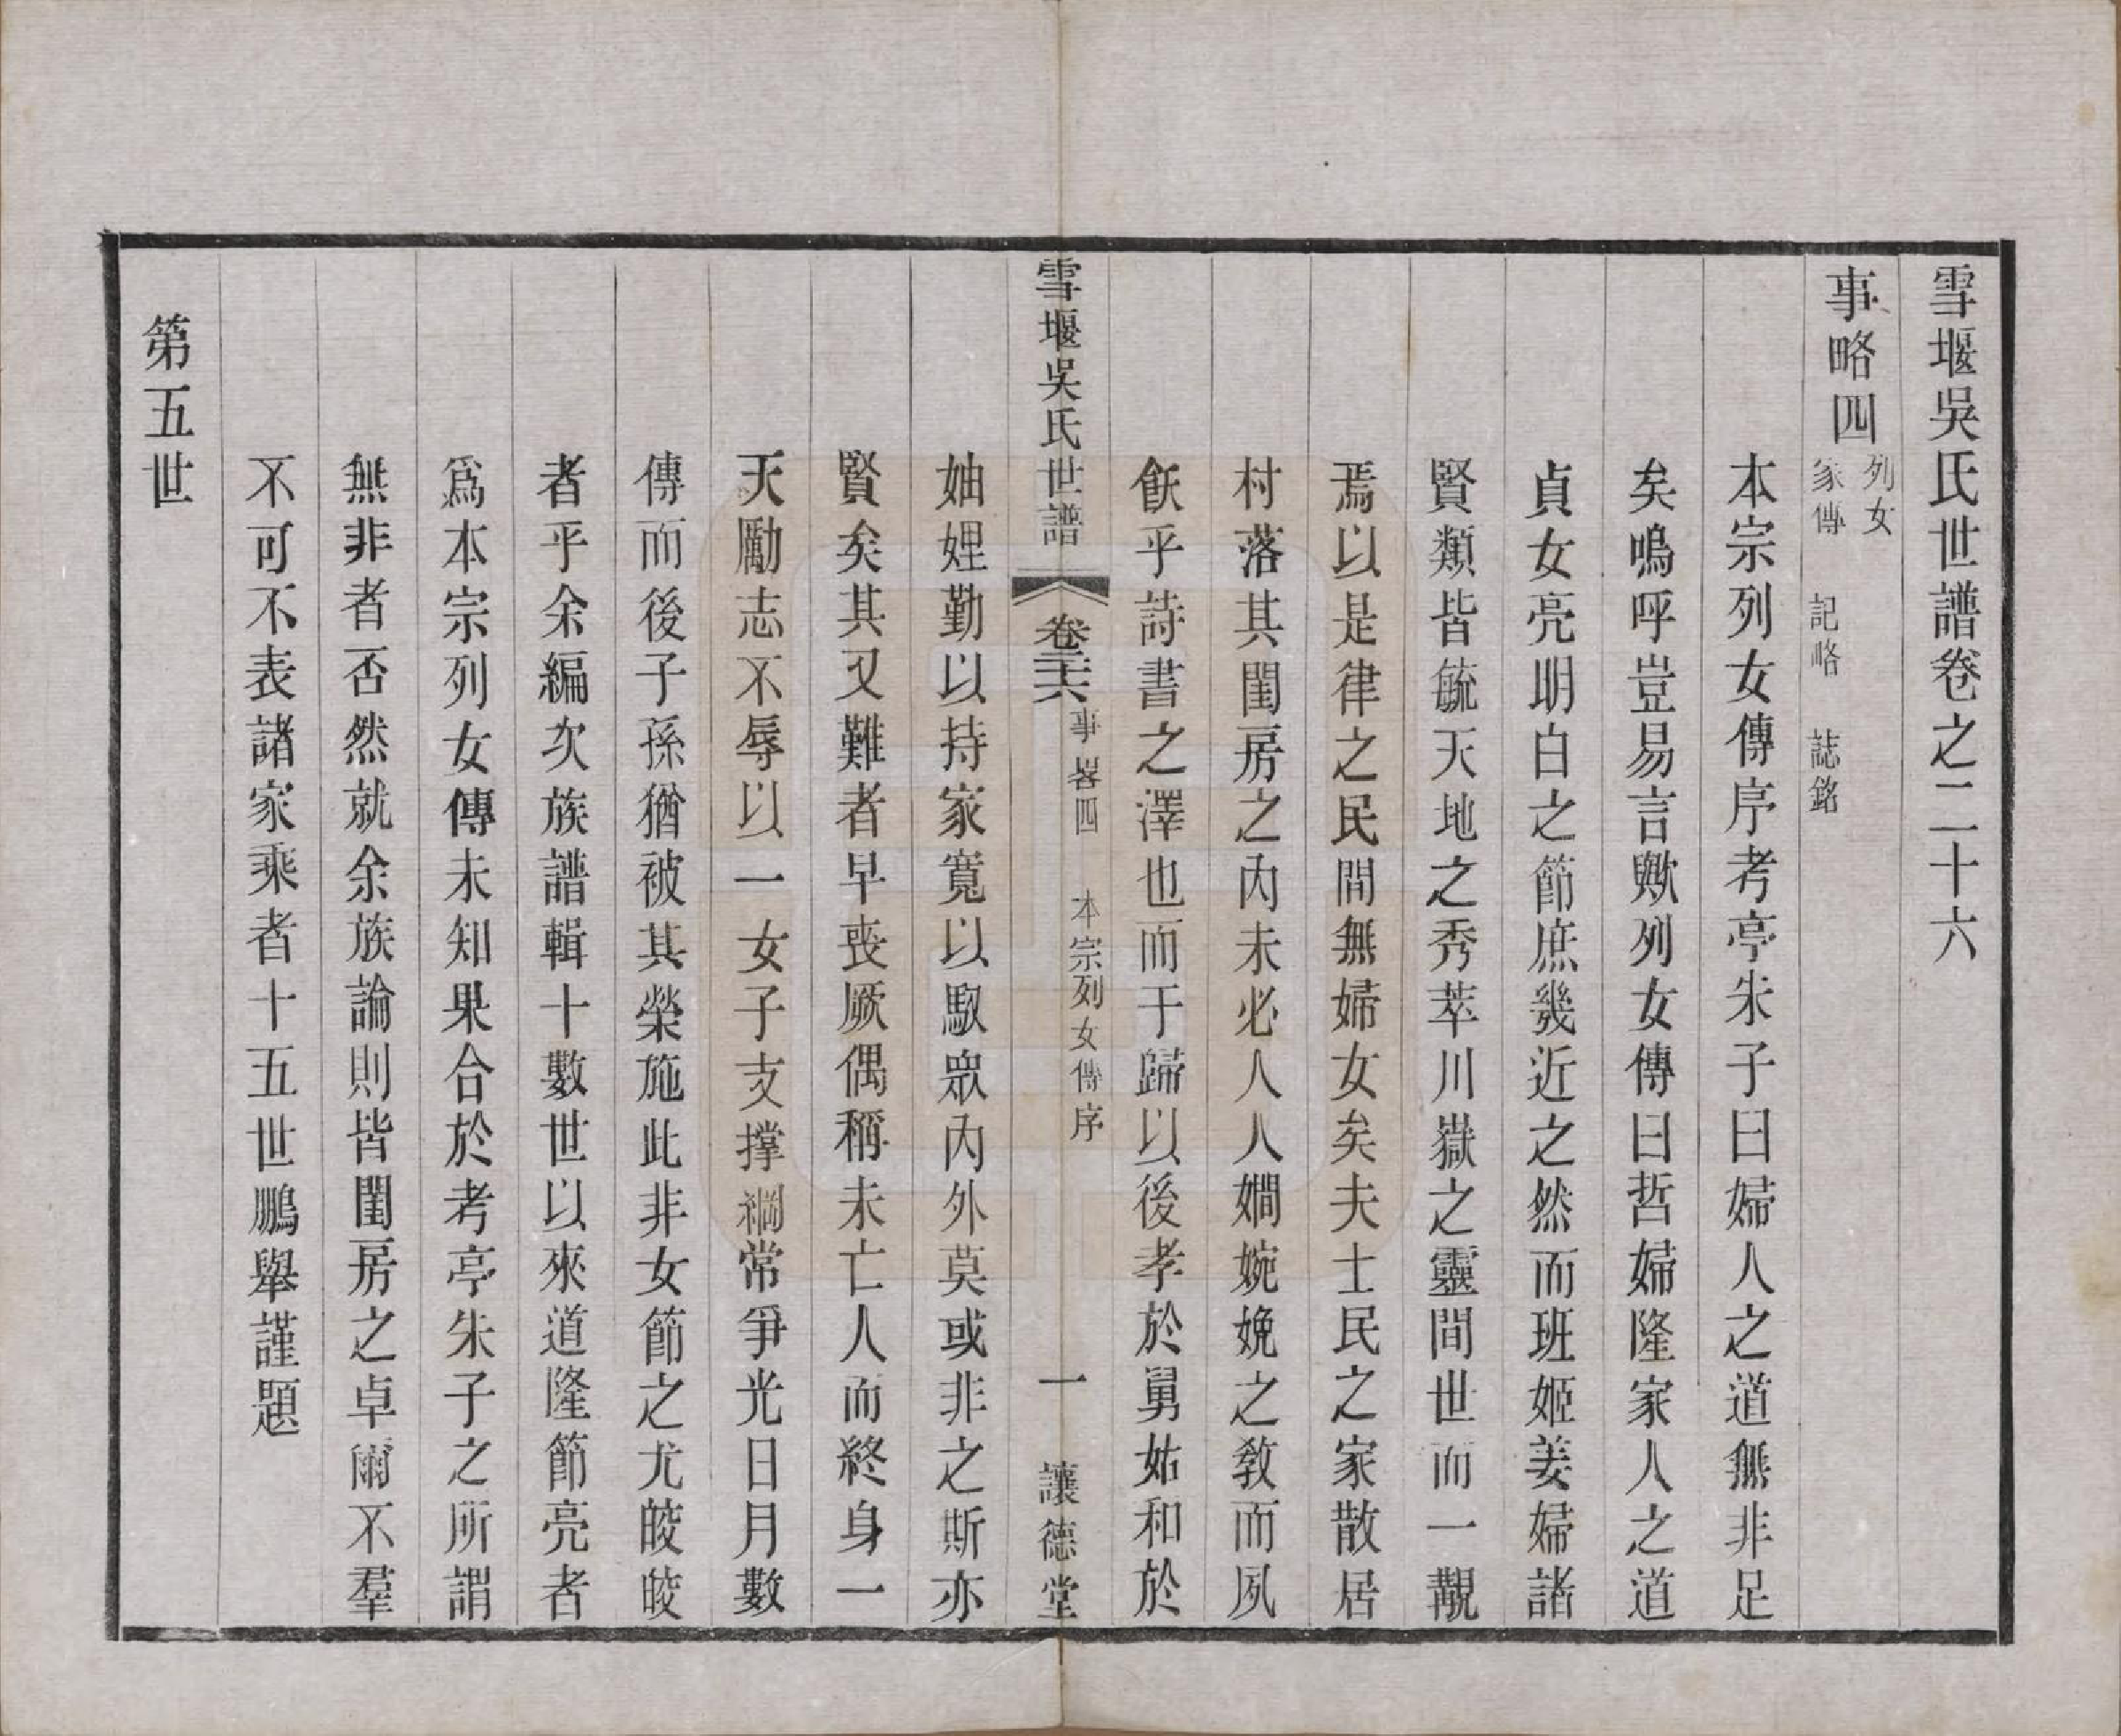 雪堰吳氏世譜卷之二十六
事略四
列女
家傳　記略　誌銘
本宗列女傳序考亭朱子曰婦人之道無非足
矣嗚呼豈易言歟列女傳曰哲婦隆家人之道
貞女亮明白之節庶幾近之然而班姬姜婦諸
賢類皆毓天地之秀萃川嶽之靈間世而一覯
焉以是律之民間無婦女矣夫士民之家散居
村落其閨房之內未必人人嫺婉娩之敎而夙
飫乎詩書之澤也而于歸以後孝於舅姑和於
雪堰吳氏世譜
卷二十六
事畧四　本宗列女傳序
一
讓德堂
妯娌勤以持家寬以馭眾內外莫或非之斯亦
賢矣其又難者早喪厥偶稱未亡人而終身一
天勵志不辱以一女子支撐綱常爭光日月數
傳而後子孫猶被其榮施此非女節之尤皎皎
者乎余編次族譜輯十數世以來道隆節亮者
爲本宗列女傳未知果合於考亭朱子之所謂
無非者否然就余族論則皆閨房之卓爾不羣
不可不表諸家乘者十五世鵬舉謹題
第五世